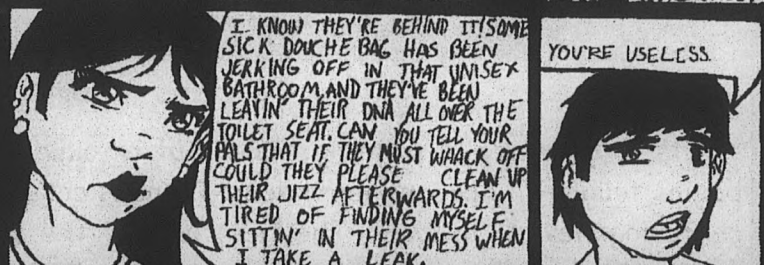 I KNOW THEY'RE BEHIND IT! SOME
SICK DOUCHE BAG HAS BEEN
JERKING OFF IN THAT UNISEX
BATHROOM, AND THEY'VE BEEN
LEAVIN' THEIR DNA ALL OVER THE
TOILET SEAT. CAN YOU TELL YOUR
PALS THAT IF THEY MUST WHACK OFF
COULD THEY PLEASE CLEAN UP
THEIR JIZZ AFTERWARDS. I'M
TIRED OF FINDING MYSELF
SITTIN' IN THEIR MESS WHEN
I TAKE A LEAK.
YOU'RE USELESS.